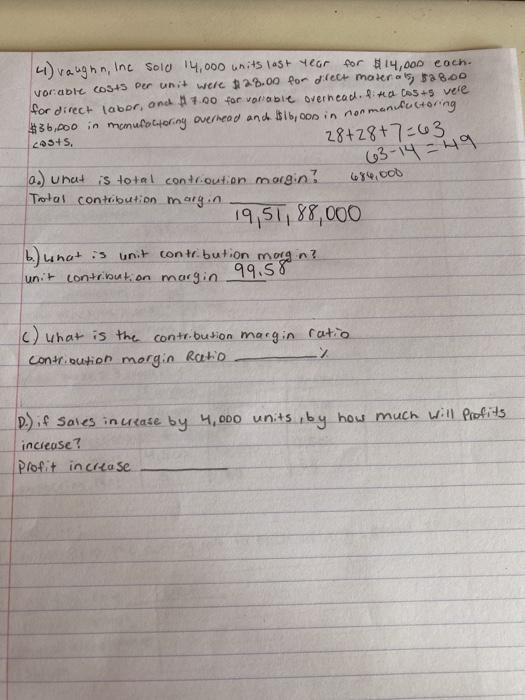 4) vaughn, Inc sold 14,000 units last year for $14,000 each.
variable costs per unit were $28.00 for direct materials, $28.00
for direct labor, and $7.00 for variable overhead. fixed costs were
$36,000 in manufactoring overhead and $16,000 in nonmanufactoring
costs.
28+28+7=63
63-14=49
684,000
a.) what is total contribution margin?
Total contribution margin
19,51,88,000
b.) what is unit contribution margin?
unit contribution margin 99.58
c) what is the contribution margin ratio
contribution margin Ratio ______ %
D.) if sales increase by 4,000 units, by how much will Profits
increase?
Profit increase ______